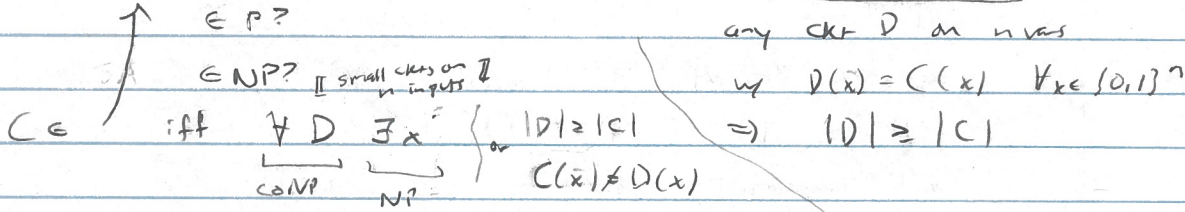 ∈ P?
∈ NP? [[ small ckts on n inputs ]]
C ∈ iff ∀ D ∃x { |D| ≥ |C| or C(x̄) ≠ D(x)
coNP NP
any ckt D on n vars
w/ D(x̄) = C(x) ∀x∈ {0,1}ⁿ
⇒ |D| ≥ |C|